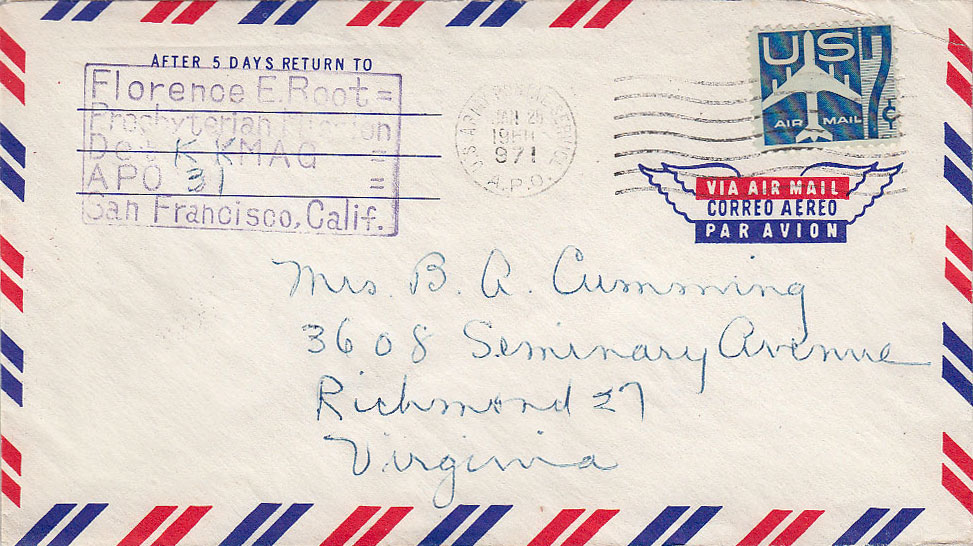 AFTER 5 DAYS RETURN TO
Florence E. Root =
Presbyterian Mission
Det K KMAG =
APO 31 =
San Francisco, Calif.
U.S. ARMY POSTAL SERVICE
JAN
971
A.P.O.
US
AIR MAIL
7¢
VIA AIR MAIL
CORREO AEREO
PAR AVION
Mrs. B. A. Cumming
3608 Seminary Avenue
Richmond 27
Virginia